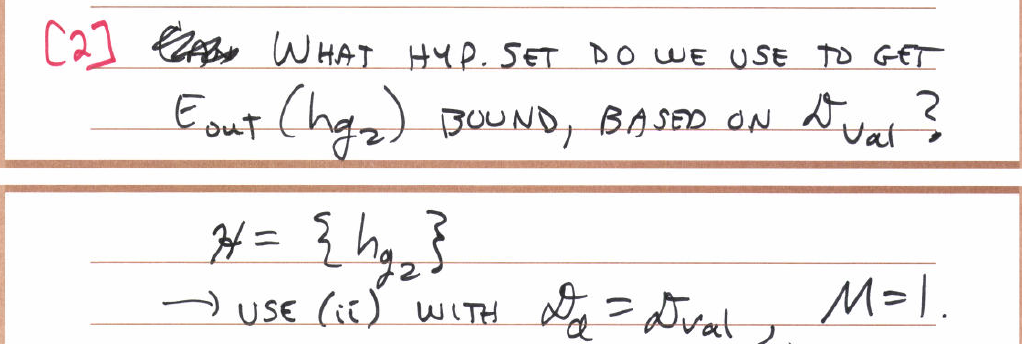 [2] WHAT HYP. SET DO WE USE TO GET
E_out (h_g_2) BOUND, BASED ON D_val ?
H = { h_g_2 }
→ USE (ii) WITH D_d = D_val , M=1.